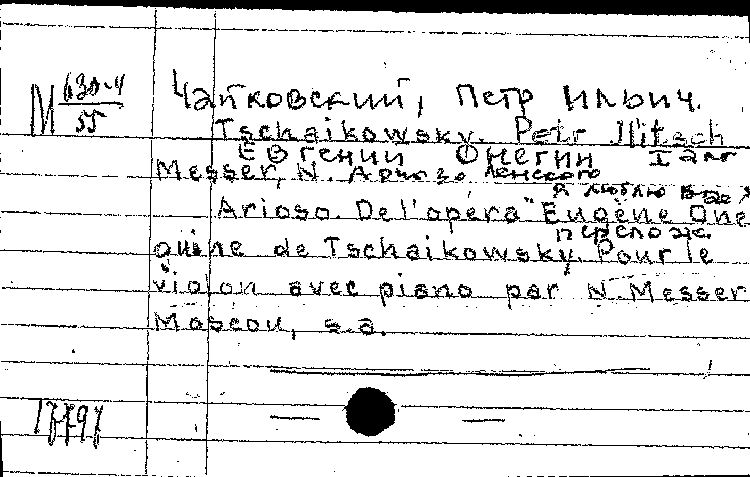 М 630-4
55
Чайковский, Петр Ильич.
Tschaikowsky. Petr Ilitsch
Евгений Онегин I акт
Messer, N. Ариозо Ленского
Я люблю вас
Arioso. Del'opéra "Eugène One
переложе.
guine de Tschaikowsky. Pour le
violon avec piano par N. Messer
Moscou, s.a.